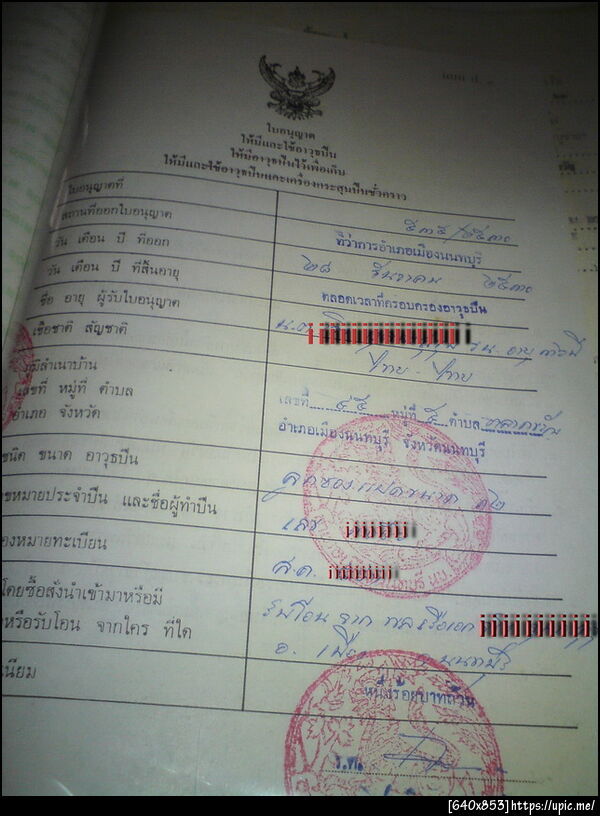 ใบอนุญาต
ให้มีและใช้อาวุธปืน
ให้มีอาวุธปืนไว้เพื่อเก็บ
ให้มีและใช้อาวุธปืนและเครื่องกระสุนปืนชั่วคราว
ใบอนุญาตที่ ๕๓๕/๒๕๓๐
สถานที่ออกใบอนุญาต ที่ว่าการอำเภอเมืองนนทบุรี
วัน เดือน ปี ที่ออก ๒๘ ธันวาคม ๒๕๓๐
วัน เดือน ปี ที่สิ้นอายุ ตลอดเวลาที่ครอบครองอาวุธปืน
ชื่อ อายุ ผู้รับใบอนุญาต ร.น. อายุ
เชื้อชาติ สัญชาติ ไทย - ไทย
ภูมิลำเนาบ้าน
เลขที่ หมู่ที่ ตำบล เลขที่ หมู่ที่ ๕ ตำบล
อำเภอ จังหวัด อำเภอเมืองนนทบุรี จังหวัดนนทบุรี
ชนิด ขนาด อาวุธปืน ลูกซอง แฝด ขนาด ๑๒
หมายประจำปืน และชื่อผู้ทำปืน เลข
องหมายทะเบียน ส.ด.
โดยซื้อสั่งนำเข้ามาหรือมี รับโอน จาก พลเรือเอก
หรือรับโอน จากใคร ที่ใด อ. เมือง จ. นนทบุรี
เนียม หนึ่งร้อยบาทถ้วน
ร.ต.
[640x853]https://upic.me/